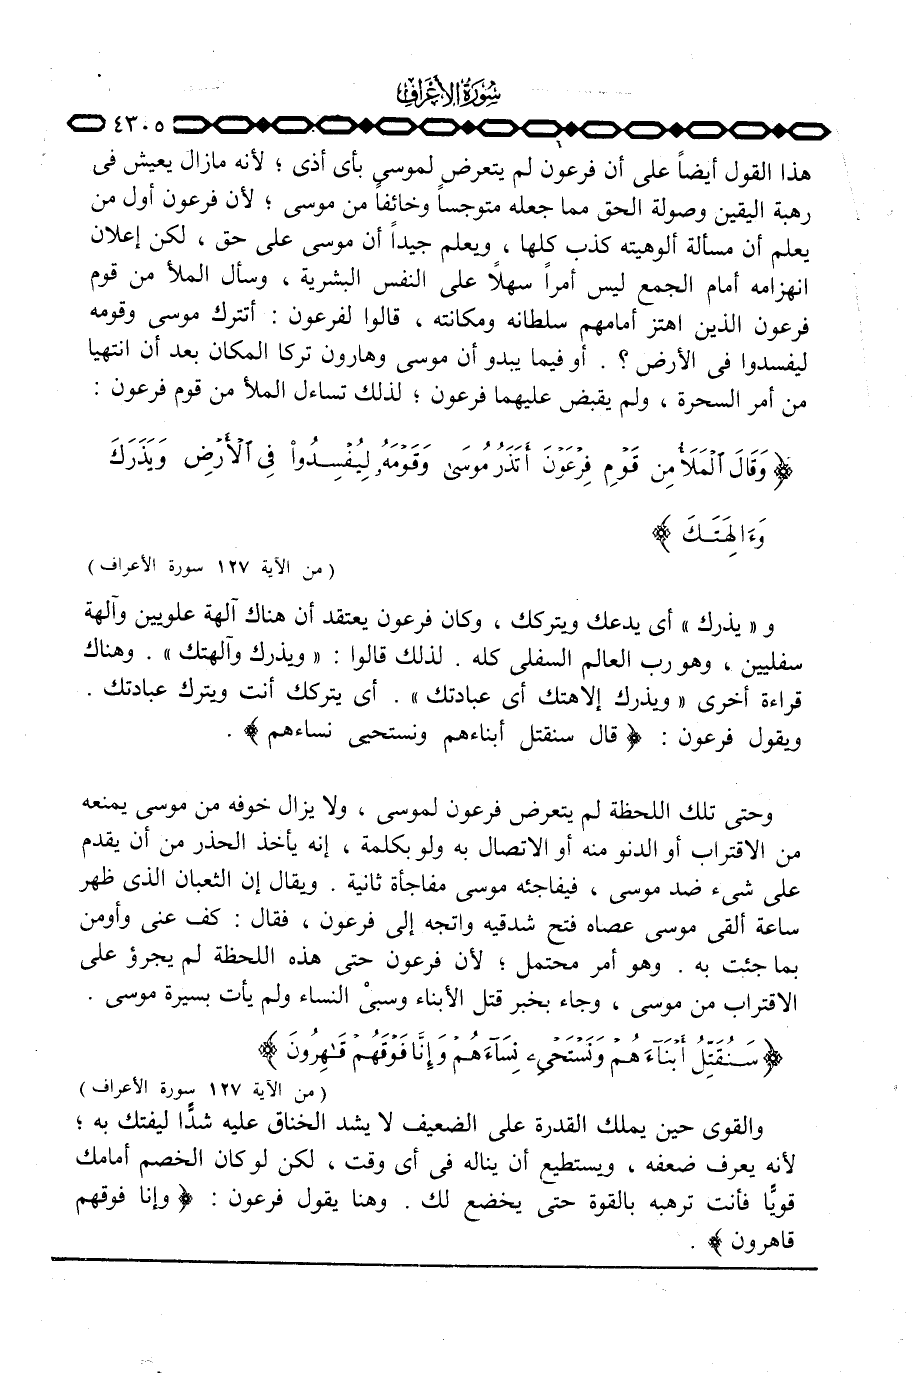 سورة الأعراف
٤٣٠٥
هذا القول أيضاً على أن فرعون لم يتعرض لموسى بأى أذى ؛ لأنه مازال يعيش فى
رهبة اليقين وصولة الحق مما جعله متوجساً وخائفاً من موسى ؛ لأن فرعون أول من
يعلم أن مسألة ألوهيته كذب كلها ، ويعلم جيداً أن موسى على حق ، لكن إعلان
انهزامه أمام الجمع ليس أمراً سهلاً على النفس البشرية ، وسأل الملأ من قوم
فرعون الذين اهتز أمامهم سلطانه ومكانته ، قالوا لفرعون : أتترك موسى وقومه
ليفسدوا فى الأرض ؟ . أو فيما يبدو أن موسى وهارون تركا المكان بعد أن انتهيا
من أمر السحرة ، ولم يقبض عليهما فرعون ؛ لذلك تساءل الملأ من قوم فرعون :
﴿ وَقَالَ ٱلْمَلَأُ مِن قَوْمِ فِرْعَوْنَ أَتَذَرُ مُوسَىٰ وَقَوْمَهُۥ لِيُفْسِدُواْ فِى ٱلْأَرْضِ وَيَذَرَكَ
وَءَالِهَتَكَ ﴾
( من الآية ١٢٧ سورة الأعراف )
و « يذرك » أى يدعك ويتركك ، وكان فرعون يعتقد أن هناك آلهة علويين وآلهة
سفليين ، وهو رب العالم السفلى كله . لذلك قالوا : « ويذرك وآلهتك » . وهناك
قراءة أخرى « ويذرك إلاهتك أى عبادتك » . أى يتركك أنت ويترك عبادتك .
ويقول فرعون : ﴿ قال سنقتل أبناءهم ونستحيى نساءهم ﴾ .
وحتى تلك اللحظة لم يتعرض فرعون لموسى ، ولا يزال خوفه من موسى يمنعه
من الاقتراب أو الدنو منه أو الاتصال به ولو بكلمة ، إنه يأخذ الحذر من أن يقدم
على شىء ضد موسى ، فيفاجئه موسى مفاجأة ثانية . ويقال إن الثعبان الذى ظهر
ساعة ألقى موسى عصاه فتح شدقيه واتجه إلى فرعون ، فقال : كف عنى وأومن
بما جئت به . وهو أمر محتمل ؛ لأن فرعون حتى هذه اللحظة لم يجرؤ على
الاقتراب من موسى ، وجاء بخبر قتل الأبناء وسبىْ النساء ولم يأت بسيرة موسى .
﴿ سَنُقَتِّلُ أَبْنَآءَهُمْ وَنَسْتَحْىِۦ نِسَآءَهُمْ وَإِنَّا فَوْقَهُمْ قَٰهِرُونَ ﴾
( من الآية ١٢٧ سورة الأعراف )
والقوى حين يملك القدرة على الضعيف لا يشد الخناق عليه شدًّا ليفتك به ؛
لأنه يعرف ضعفه ، ويستطيع أن يناله فى أى وقت ، لكن لو كان الخصم أمامك
قويًّا فأنت ترهبه بالقوة حتى يخضع لك . وهنا يقول فرعون : ﴿ وإنا فوقهم
قاهرون ﴾ .